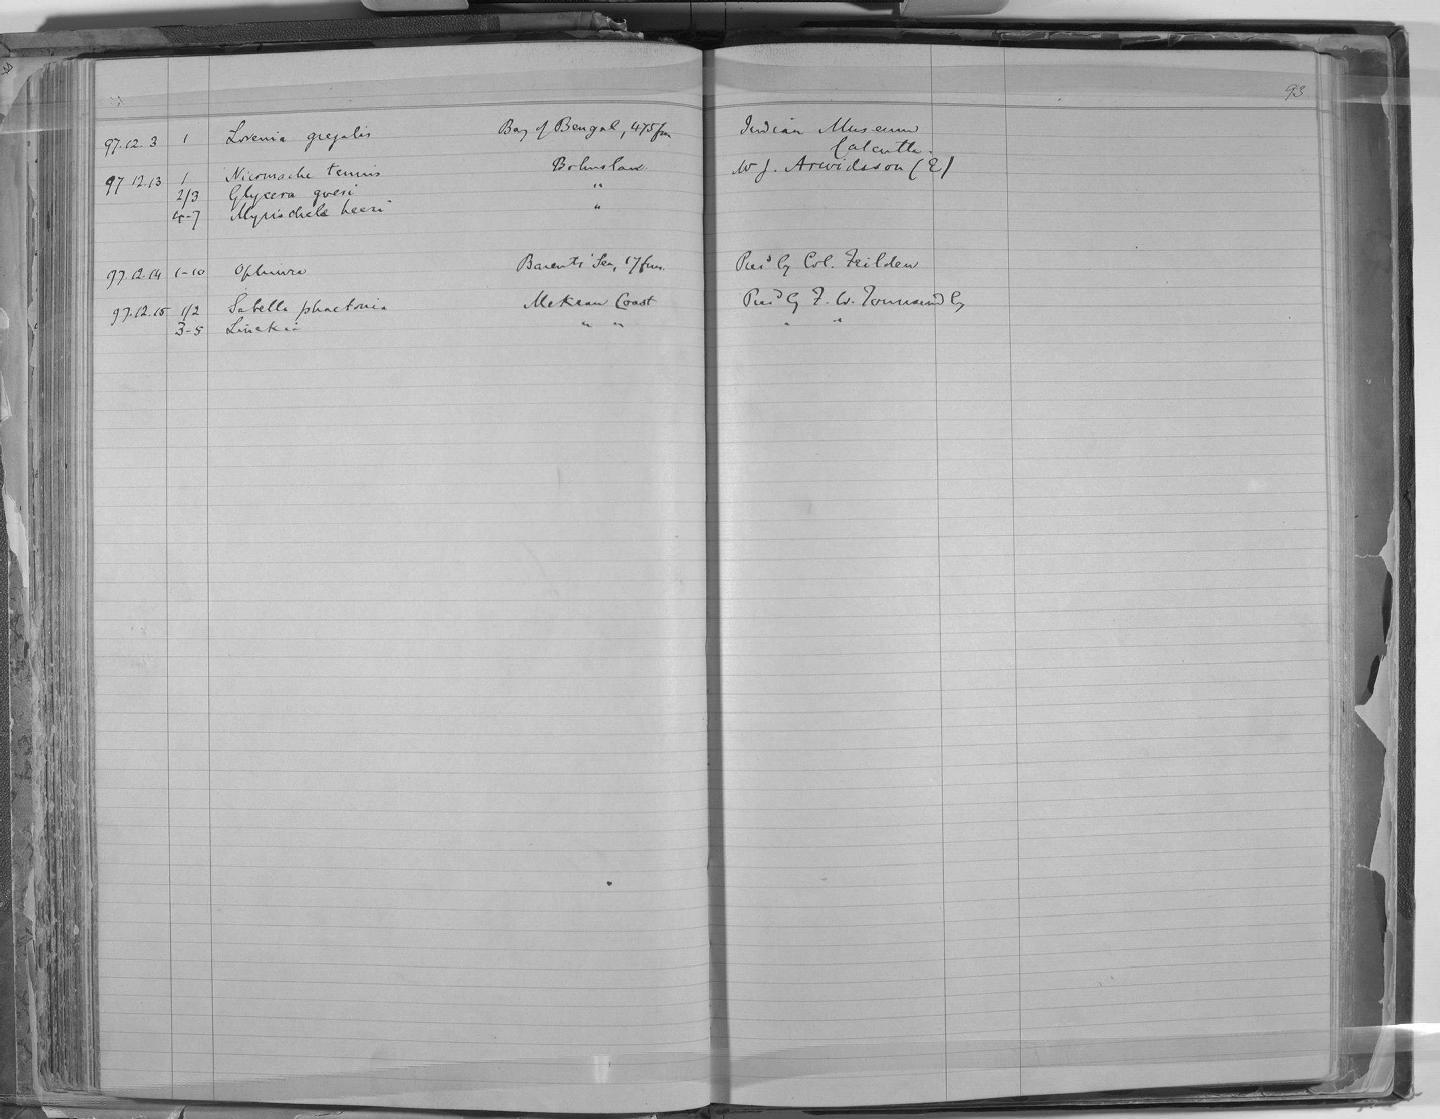 93
97.12.3 1 Lovenia gregalis Bay of Bengal, 475 fm Indian Museum
Calcutta.
97.12.13 1 Nicomache tenuis Bohuslan W J. Arwidsson (E)
2/3 Glycera goesi "
4-7 Myriochele heeri "
97.12.14 1-10 Ophiura Barents' Sea, 17 fms. Pres^d by Col. Feilden
97.12.15 1/2 Sabella phaetonia Mekran Coast Pres^d by F. W. Townsend Esq
3-5 Linckia " " " "